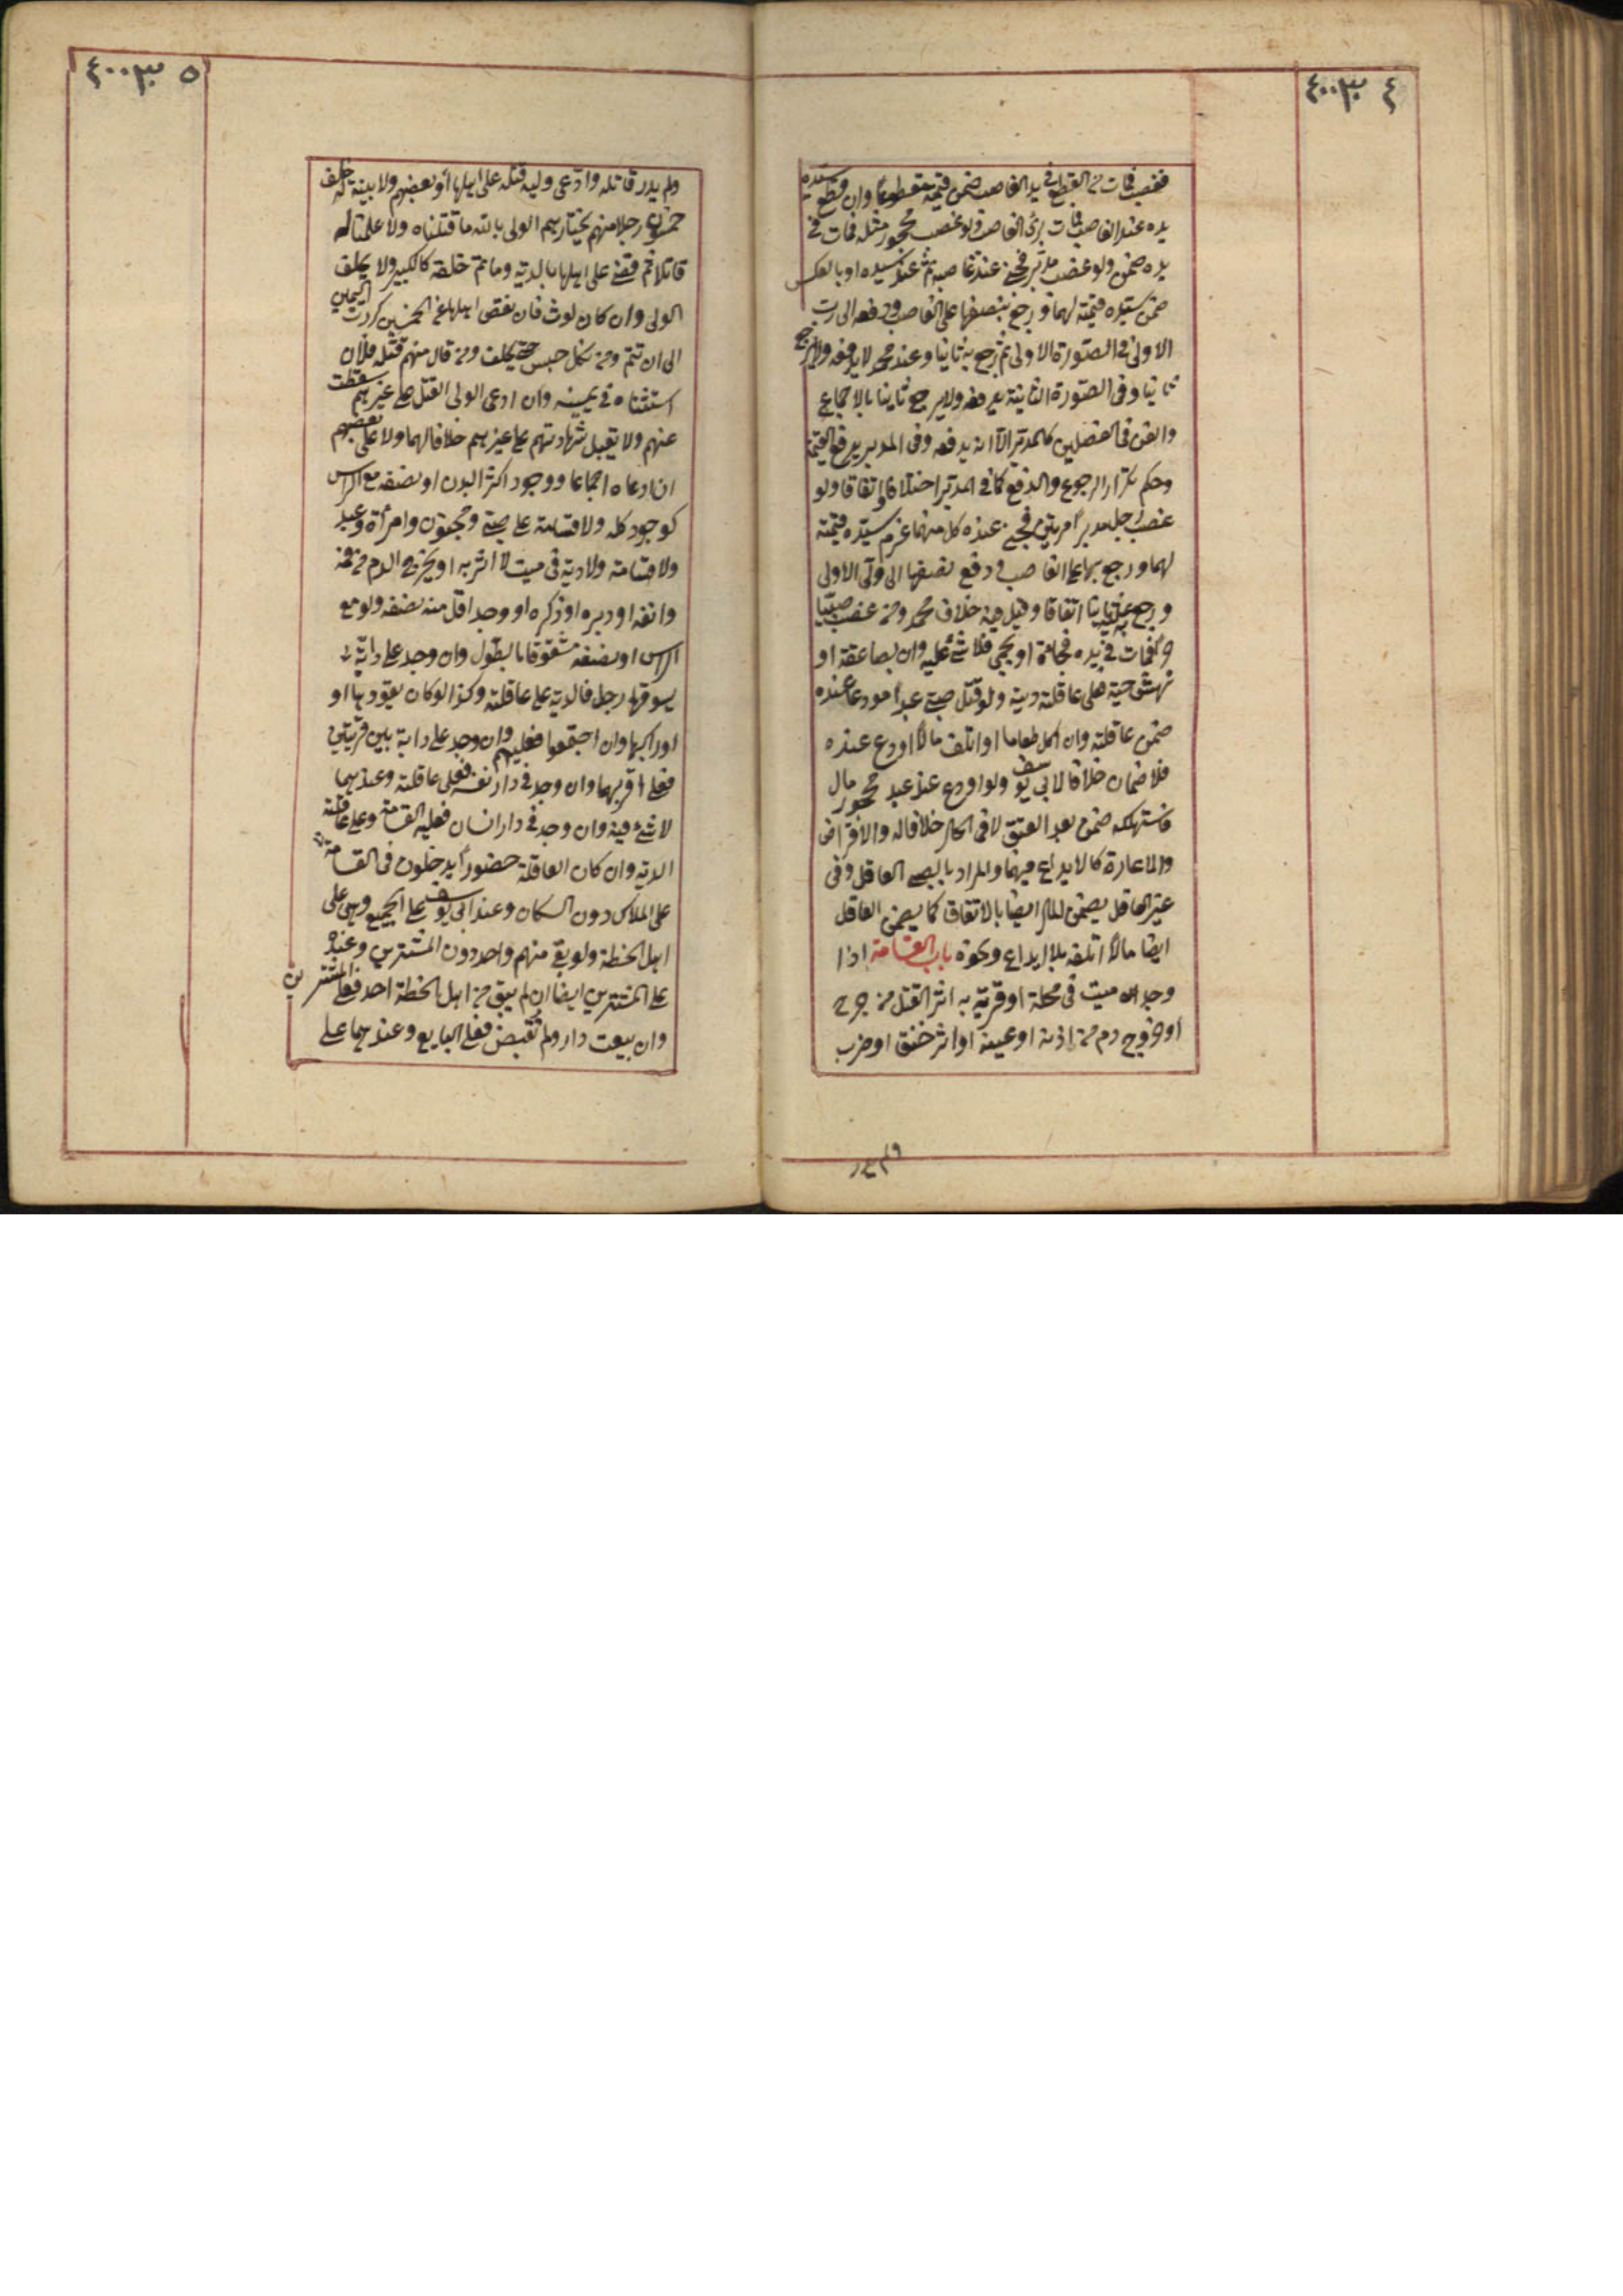 ٤ ٤٠٠٣
فغصب فمات من القطع في يد الغاصب ضمن قيمته مقطوعا وان قطع سيده
يده عند الغاصب فمات برئ الغاصب ولو غصب محجور مثله فمات في
يده ضمن ولو غصب مدبر فجنى عند غاصبه ثم عند سيده او بالعكس
ضمن سيده قيمته لهما ورجع بنصفها على الغاصب ودفعه الى رب
الاولى في الصورة الاولى ثم رجع به ثانيا وعند محمد لا يدفعه ولا يرجع
ثانيا وفي الصورة الثانية يدفعه ولا يرجع ثانيا بالاجماع
والقن في الفصلين كالمدبر الا انه يدفعه وفي المدبر يدفع القيمة
وحكم تكرار الرجوع والدفع كما في المدبر اختلافا واتفاقا ولو
غصب رجل مدبرا مرتين فجنى عنده كل منهما غرم سيده قيمته
لهما ورجع بها على الغاصب ودفع نصفها الى ولي الاولى
ورجع به عليه ثانيا اتفاقا وقيل فيه خلاف محمد ومن غصب صبيا
حرا فمات في يده فجاءة او بحمى فلا شئ عليه وان بصاعقة او
نهش حية فعلى عاقلته ديته ولو قتل صبي عبدا مودعا عنده
ضمن عاقلته وان اكل طعاما او اتلف مالا اودع عنده
فلا ضمان خلافا لابي يوسف ولو اودع عند عبد محجور مال
فاستهلكه ضمن بعد العتق لا في الحال خلافا له والاقراض
والاعارة كالايداع فيهما والمراد بالصبي العاقل وفي
غير العاقل يضمن المال ايضا بالاتفاق كما يضمن العاقل
ايضا مالا اتلفه بلا ايداع ونحوه باب القسامة اذا
وجد ميت في محلة او قرية به اثر القتل من جرح
او خروج دم من اذنه او عينه او اثر خنق او ضرب
ولم يدر
٥ ٤٠٠٣
ولم يدر قاتله وادعى وليه قتله على اهلها او بعضهم ولا بينة له حلف
خمسون رجلا منهم يختارهم الولي بالله ما قتلناه ولا علمنا له
قاتلا ثم قضي على اهلها بالدية وما تم خلقه كالكبير ولا يحلف
الولي وان كان لوث فان نقص اهلها عن الخمسين كررت اليمين
الى ان تتم ومن نكل حبس حتى يحلف ومن قال منهم قتله فلان
استثناه في يمينه وان ادعى الولي القتل على غيرهم سقطت
عنهم ولا يقبل شهادتهم على غيرهم خلافا لهما ولا على بعضهم
ان ادعاه اجماعا ووجود اكثر البدن او نصفه مع الراس
كوجود كله ولا قسامة على صبي ومجنون وامرأة وعبد
ولا قسامة ولا دية في ميت لا اثر به او يخرج الدم من فمه
وانفه او دبره او ذكره او وجد اقل من نصفه ولو مع
الراس او نصفه مشقوقا بالطول وان وجد على دابة
يسوقها رجل فالدية على عاقلته وكذا لو كان يقودها او
او راكبها وان اجتمعوا فعليهم وان وجد على دابة بين قريتين
فعلى اقربهما وان وجد في دار نفسه فعلى عاقلته وعندهما
لا شئ فيه وان وجد في دار انسان فعليه القسامة وعلى عاقلته
الدية وان كان العاقلة حضورا يدخلون في القسامة
على الملاك دون السكان وعند ابي يوسف على الجميع وهي على
اهل الخطة ولو بقي منهم واحد دون المشترين وعنده
على المشترين ايضا ان لم يبق من اهل الخطة احد فعلى المشترين
وان بيعت دار ولم تقبض فعلى البايع وعندهما على